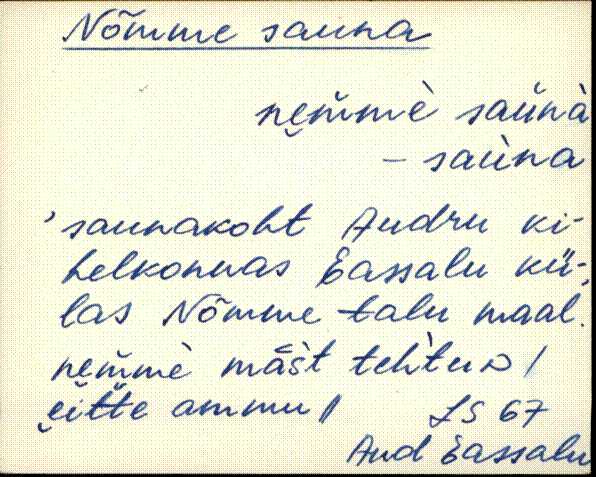 Nõmme sauna
ne̮m̆mè saŭnà
– saùna
'saunakoht Audru ki-
helkonnas Eassalu kü-
las Nõmme talu maal.'
ne̮m̆mè mā̬s̀t teh̀tuᴅ /
e̮it̆te ammu //
LS 67
Aud Eassalu